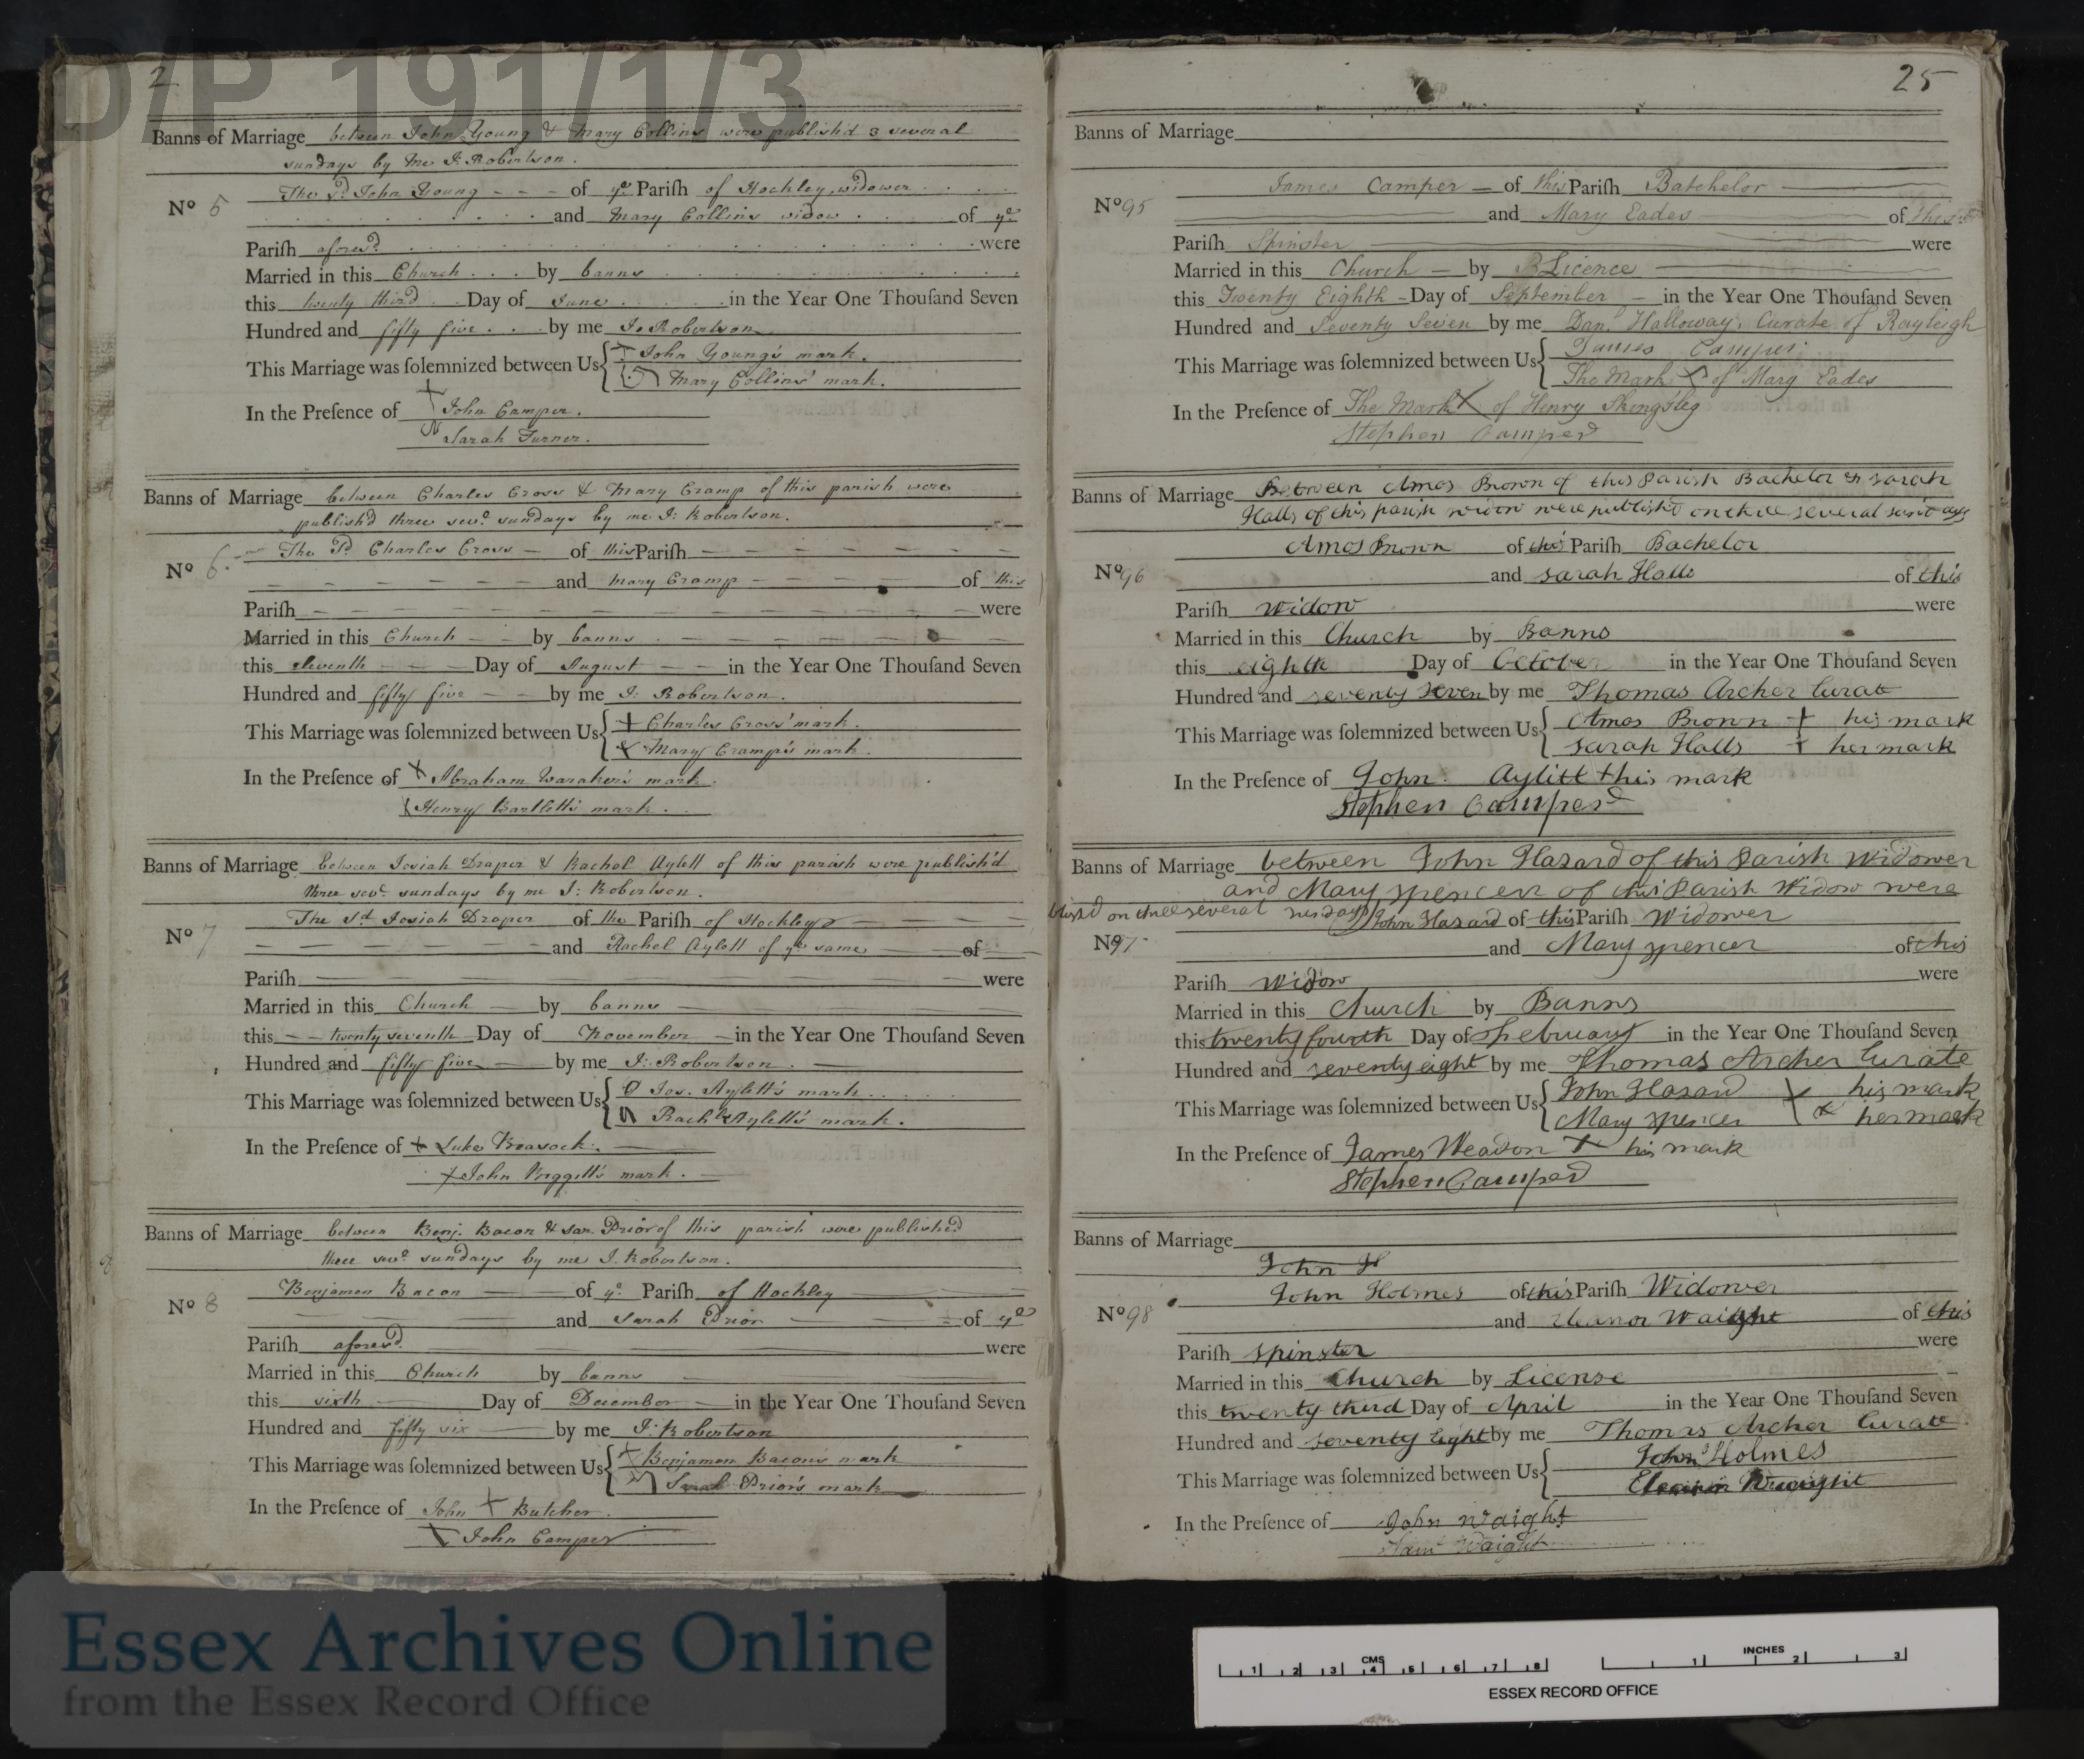 D/P 191/1/3
2
Banns of Marriage between John Young & Mary Collins were publish'd 3 several
sundays by me J: Robertson.
The sd. John Young - - - of ye Pariſh of Hockley, widower
No 5
and Mary Collins widow of ye
Pariſh afores'd were
Married in this Church by banns
this twenty third Day of June in the Year One Thouſand Seven
Hundred and fifty five by me Jo Robertson
This Marriage was ſolemnized between Us { John Young's mark.
Mary Collins' mark.
In the Preſence of + John Camper.
Sarah Turner.
Banns of Marriage between Charles Cross & Mary Cramp of this parish were
publish'd three sev.l sundays by me J: Robertson.
The Sd. Charles Cross - of this Pariſh
No 6
and Mary Cramp of this
Pariſh were
Married in this Church by banns
this eleventh Day of August in the Year One Thouſand Seven
Hundred and fifty five by me J: Robertson.
This Marriage was ſolemnized between Us { + Charles Cross' mark.
x Mary Cramp's mark.
In the Preſence of x Abraham mark.
x Henry Bartlett's mark.
Banns of Marriage between Josiah Draper & Rachel Aylett of this parish were publish'd
three sev.l sundays by me J: Robertson.
The Sd Josiah Draper of the Pariſh of Hockley
No 7
and Rachel Aylett of ye same of
Pariſh were
Married in this Church by banns
this twenty seventh Day of November in the Year One Thouſand Seven
Hundred and fifty five by me J: Robertson.
This Marriage was ſolemnized between Us { Jos. Aylett's mark
Rach'l Aylett's mark.
In the Preſence of + Luke
+ John mark.
Banns of Marriage between Benj. Bacon & Sar. Prior of this parish were published
three sev.l sundays by me J. Robertson.
Benjamen Bacon of ye Pariſh of Hockley
No 8
and Sarah Prior of ye
Pariſh afores'd. were
Married in this Church by banns
this sixth Day of December in the Year One Thouſand Seven
Hundred and fifty six by me J: Robertson
This Marriage was ſolemnized between Us { + Benjamen Bacon's mark
Sarah Prior's mark
In the Preſence of John + Butcher.
x John Camper
25
Banns of Marriage
James Camper - of this Pariſh Batchelor
No 95
and Mary Eades of this
Pariſh Spinster were
Married in this Church - by Licence
this Twenty Eighth - Day of September - in the Year One Thouſand Seven
Hundred and Seventy Seven by me Danl. Halloway, Curate of Rayleigh
This Marriage was ſolemnized between Us { James Camper
The Mark X of Mary Eades
In the Preſence of The Mark X of Henry
Stephen Camper
Banns of Marriage Between Amos Brown of this Parish Bachelor & Sarah
Halls of this parish widow were publish'd on three several sundays
Amos Brown of this Pariſh Bachelor
No 96
and Sarah Halls of this
Pariſh Widow were
Married in this Church by Banns
this eighth Day of October in the Year One Thouſand Seven
Hundred and seventy seven by me Thomas Archer Curate
This Marriage was ſolemnized between Us { Amos Brown + his mark
Sarah Halls + her mark
In the Preſence of John Aylitt + his mark
Stephen Camper
Banns of Marriage between John Hazard of this Parish Widower
and Mary Spencer of this Parish Widow were
on three several sundays John Hazard of this Pariſh Widower
No 97
and Mary Spencer of this
Pariſh Widow were
Married in this Church by Banns
this twenty fourth Day of February in the Year One Thouſand Seven
Hundred and seventy eight by me Thomas Archer Curate
This Marriage was ſolemnized between Us { John Hazard + his mark
Mary Spencer x her mark
In the Preſence of James Weadon + his mark
Stephen Camper
Banns of Marriage
John H
John Holmes of this Pariſh Widower
No 98
and Eleanor Waight of this
Pariſh Spinster were
Married in this Church by License
this twenty third Day of April in the Year One Thouſand Seven
Hundred and seventy eight by me Thomas Archer Curate
This Marriage was ſolemnized between Us { John Holmes
Eleanor Waight
In the Preſence of John Waight
Saml Waight
Essex Archives Online
from the Essex Record Office
CMS
1 2 3 4 5 6 7 8
INCHES
1 2 3
ESSEX RECORD OFFICE